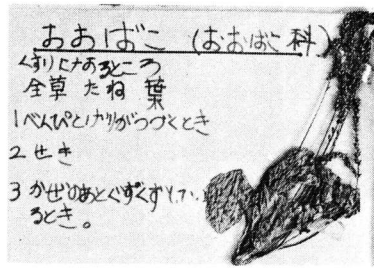 おおばこ (おおばこ科)
くすりになるところ
全草 たね 葉
1 べんぴとげりがつづくとき
2 せき
3 かぜのあとぐずぐずしてい
るとき。